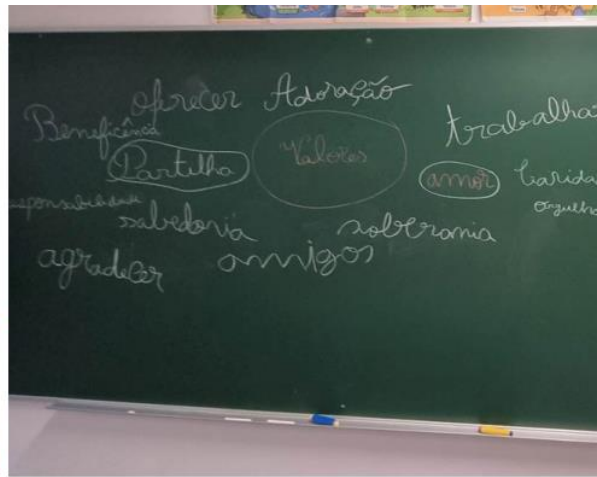 oferecer Adoração
Beneficência trabalha
Partilha Valores amor Carida
responsabilidade sabedoria soberania orgulho
agradecer amigos